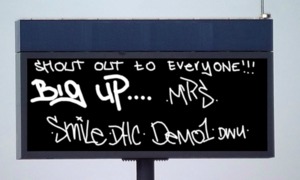 SHOUT OUT TO EVERYONE!!!
BIG UP.... MRS
SMILE DHC DEMO1 DWU